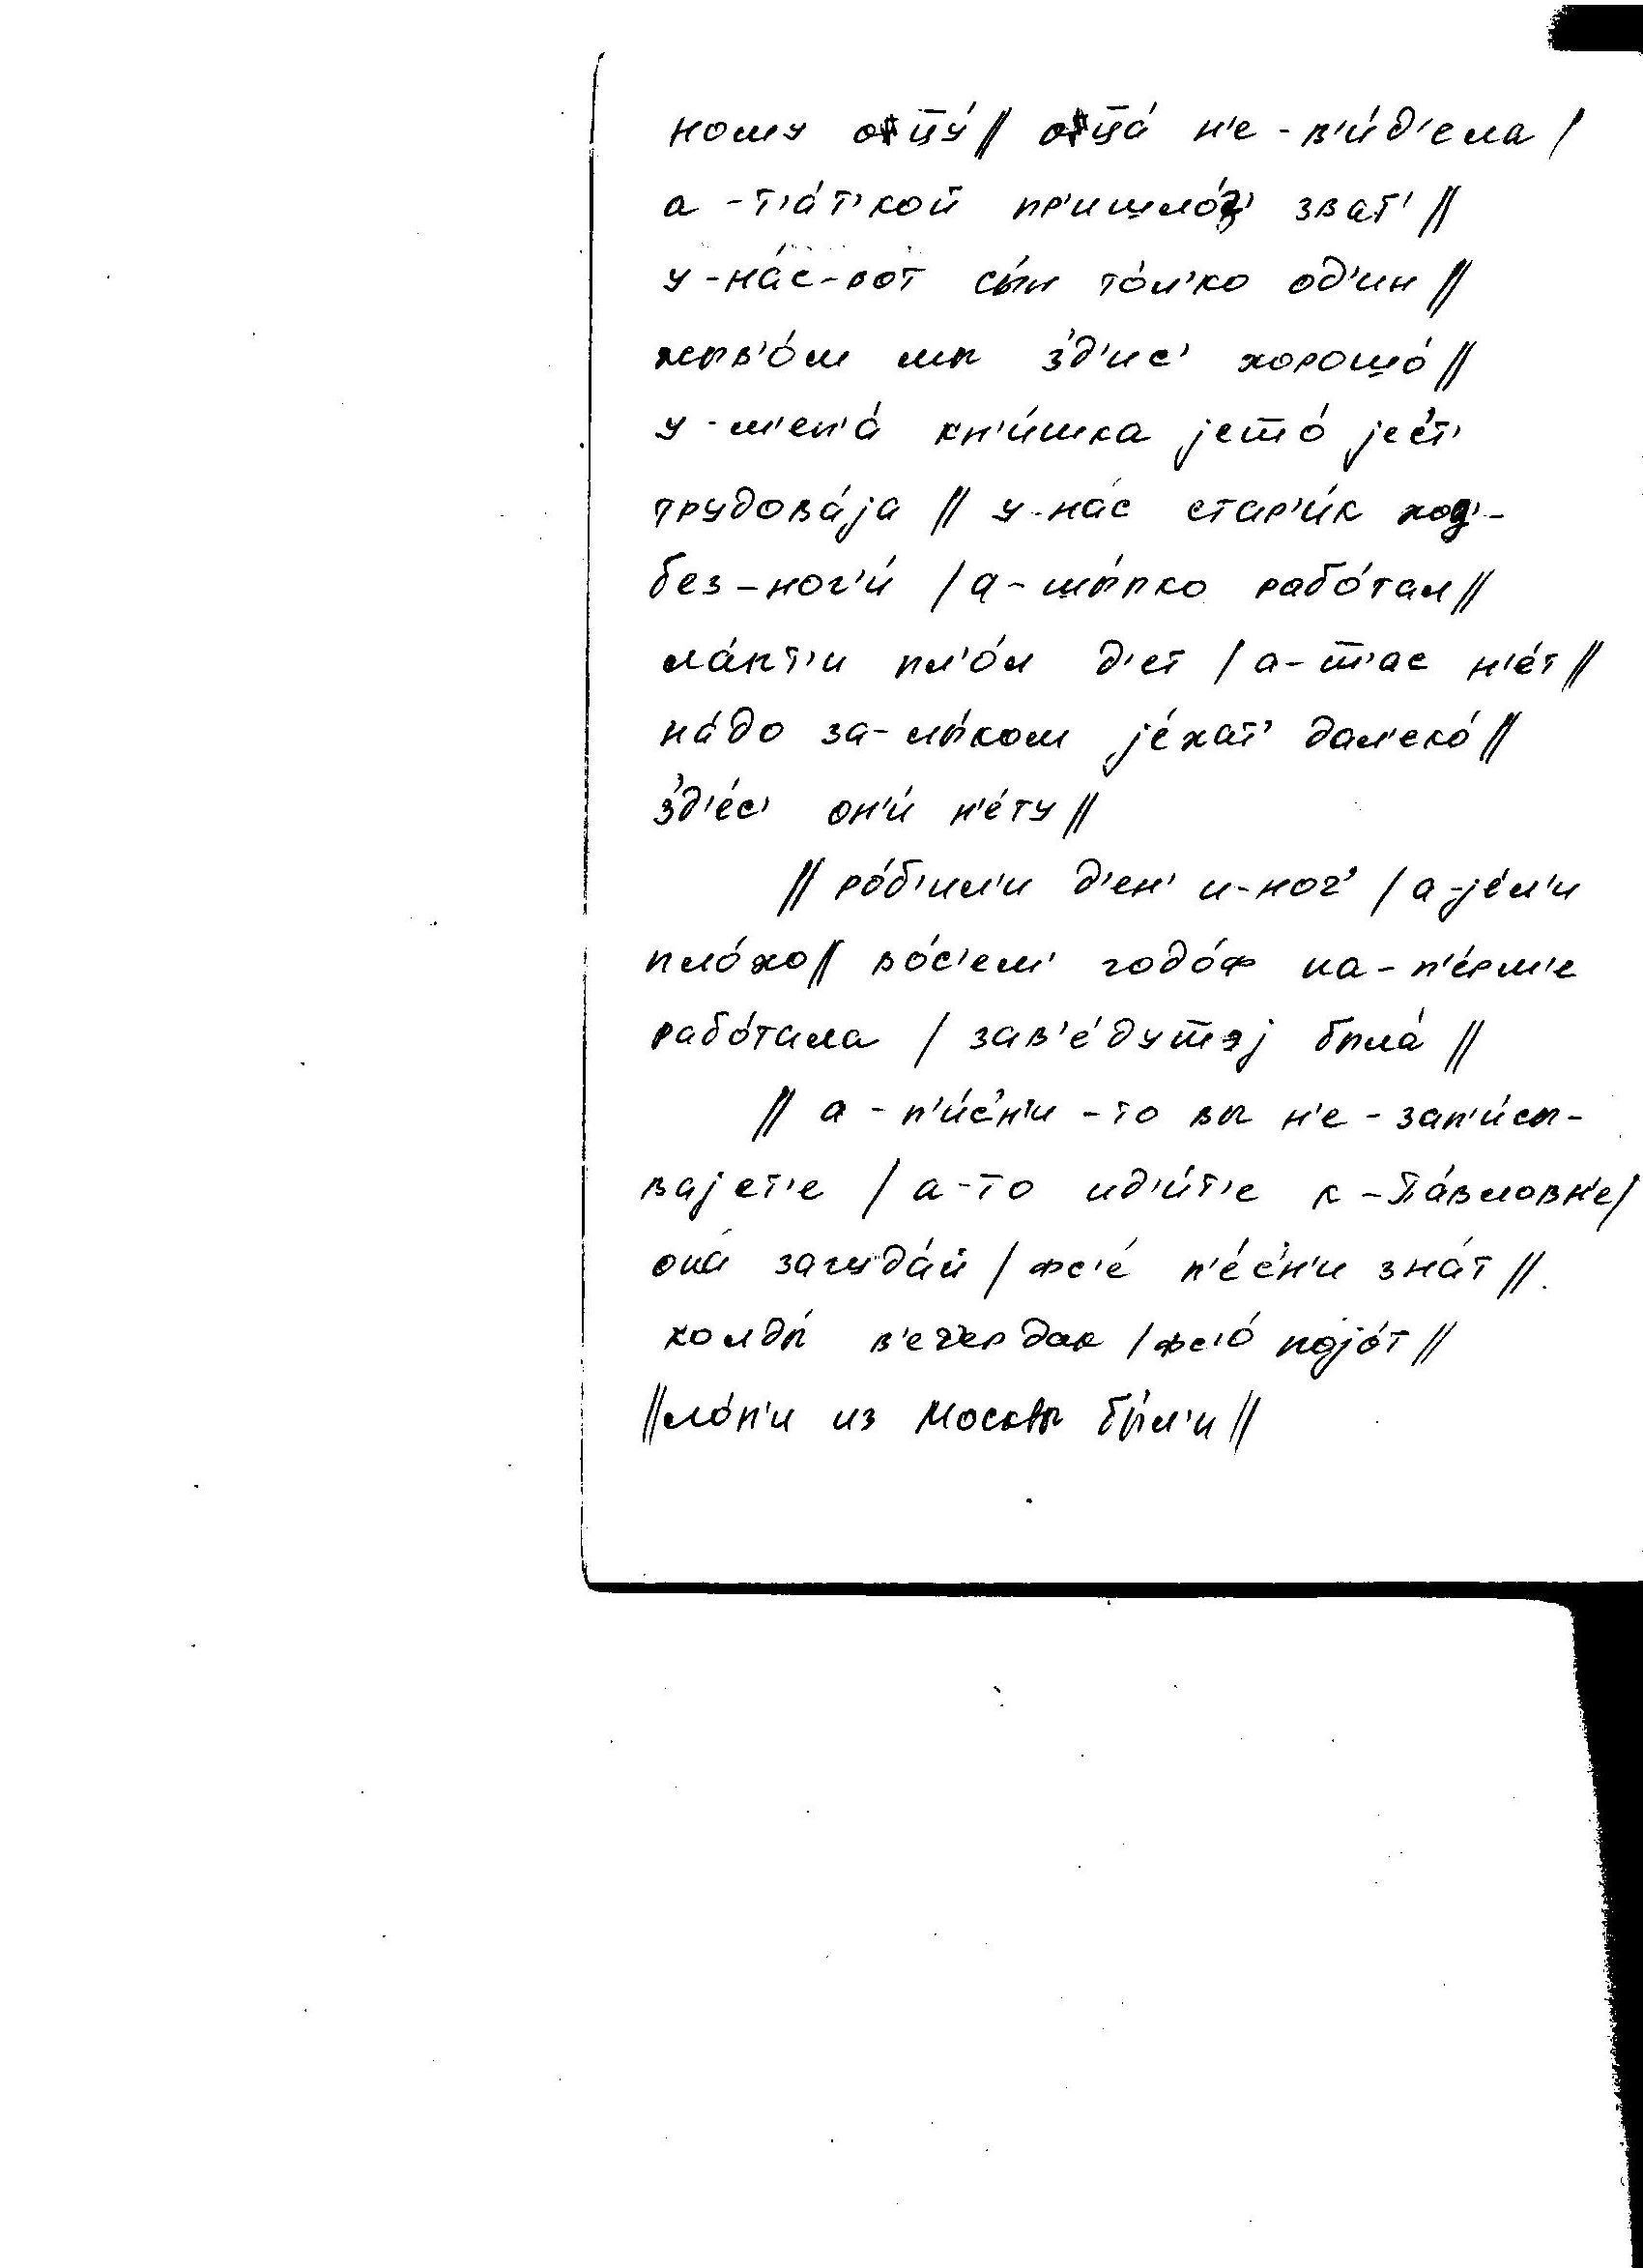 ному оц̅у́ // оц̅а́ н'е - в'и́д'ела /
а - т'а́т'кой пр'ишло́з' зват' //
у - на́с - вот сы́н то́л'ко од'ин //
жыв'о́м мы з'д'ис' хорошо́ //
у - м'ен'а́ кн'и́шка јеш̅о́ јес'т'
трудова́ја // у - на́с стар'и́к хоц'-
без - ног'и́ / а - шы́пко рабо́тал //
ла́пт'и пл'о́л д'ет / а - ш̅'ас н'е́т //
на́до за - лы́ком је́хат' дал'еко́ //
з'д'е́с' он'и́ н'е́ту //
// ро́б'ил'и д'ен' и - ноч' / а - је́л'и
пло́хо // во́с'ем' годо́ф на - п'е́рм'е
рабо́тала / зав'е́душ̅эј была́ //
// а - п'и́с'н'и - то вы н'е - зап'и́сы-
вајет'е / а - то ид'и́т'е к - Па́вловн'е /
она́ загуда́й / фс'е́ п'е́с'н'и зна́т //
колды́ в'еч'ер дак / фс'о́ појо́т //
// ло́н'и из Москвы бы́л'и //